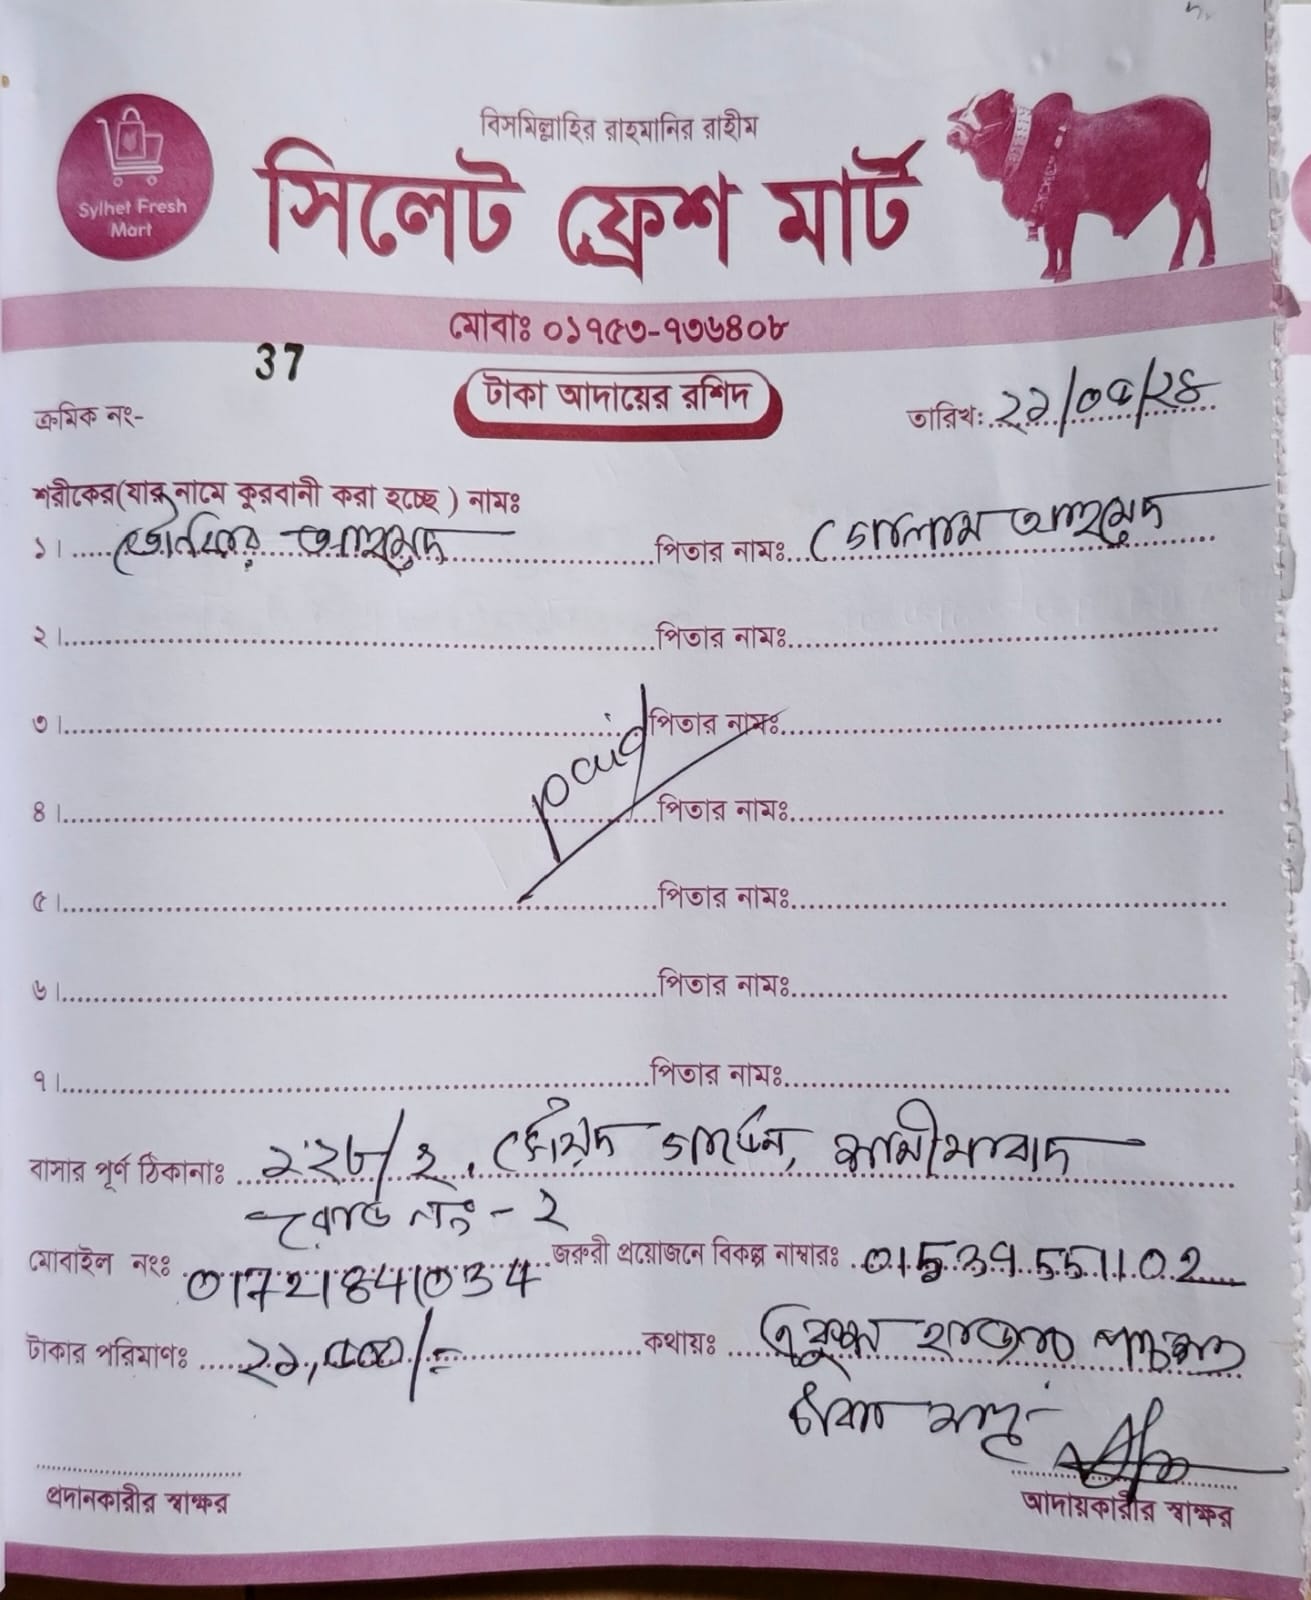 বিসমিল্লাহির রাহমানির রাহীম
Sylhet Fresh
Mart
সিলেট ফ্রেশ মার্ট
মোবাঃ ০১৭৫৩-৭৩৬৪০৮
37
টাকা আদায়ের রশিদ
ক্রমিক নং-
তারিখ: ২১/০৫/২৪
শরীকের(যার নামে কুরবানী করা হচ্ছে ) নামঃ
১। তৌফিক আহমেদ পিতার নামঃ গোলাম আহমেদ
২। পিতার নামঃ
৩। পিতার নামঃ
paid
৪। পিতার নামঃ
৫। পিতার নামঃ
৬। পিতার নামঃ
৭। পিতার নামঃ
বাসার পূর্ণ ঠিকানাঃ ২২৮/২, সৈয়দ গার্ডেন,
রোড নং - ২
মোবাইল নংঃ 01721841034 জরুরী প্রয়োজনে বিকল্প নাম্বারঃ 01539551102
টাকার পরিমাণঃ ২১,৫০০/= কথায়ঃ একুশ হাজার পাঁচশত
টাকা মাত্র
প্রদানকারীর স্বাক্ষর
আদায়কারীর স্বাক্ষর